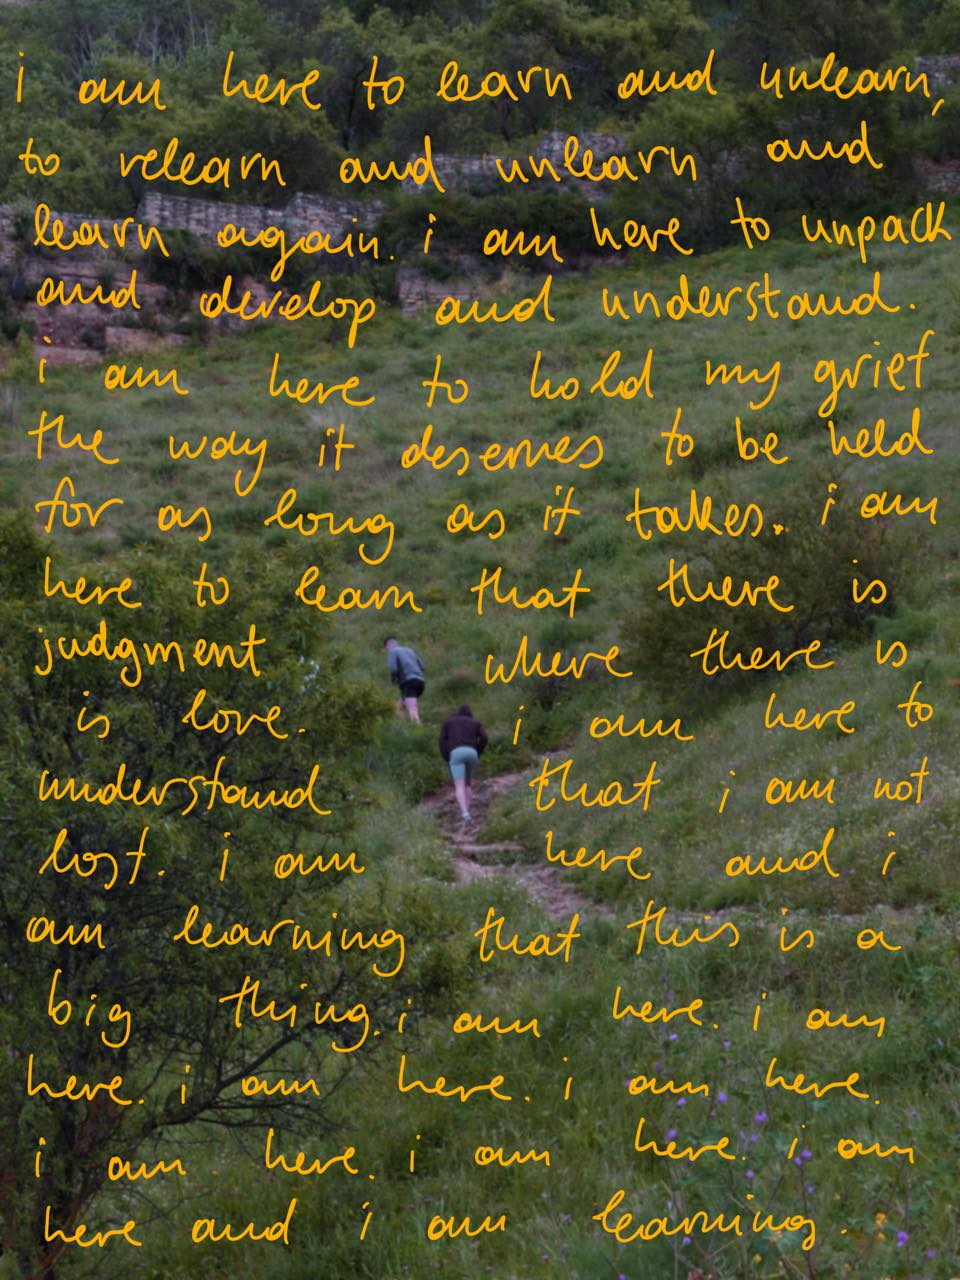 i am here to learn and unlearn,
to relearn and unlearn and
learn again. i am here to unpack
and develop and understand.
i am here to hold my grief
the way it deserves to be held
for as long as it takes. i am
here to learn that there is
judgment where there is
is love. i am here to
understand that i am not
lost. i am here and i
am learning that this is a
big thing. i am here. i am
here. i am here. i am here.
i am here. i am here. i am
here and i am learning.